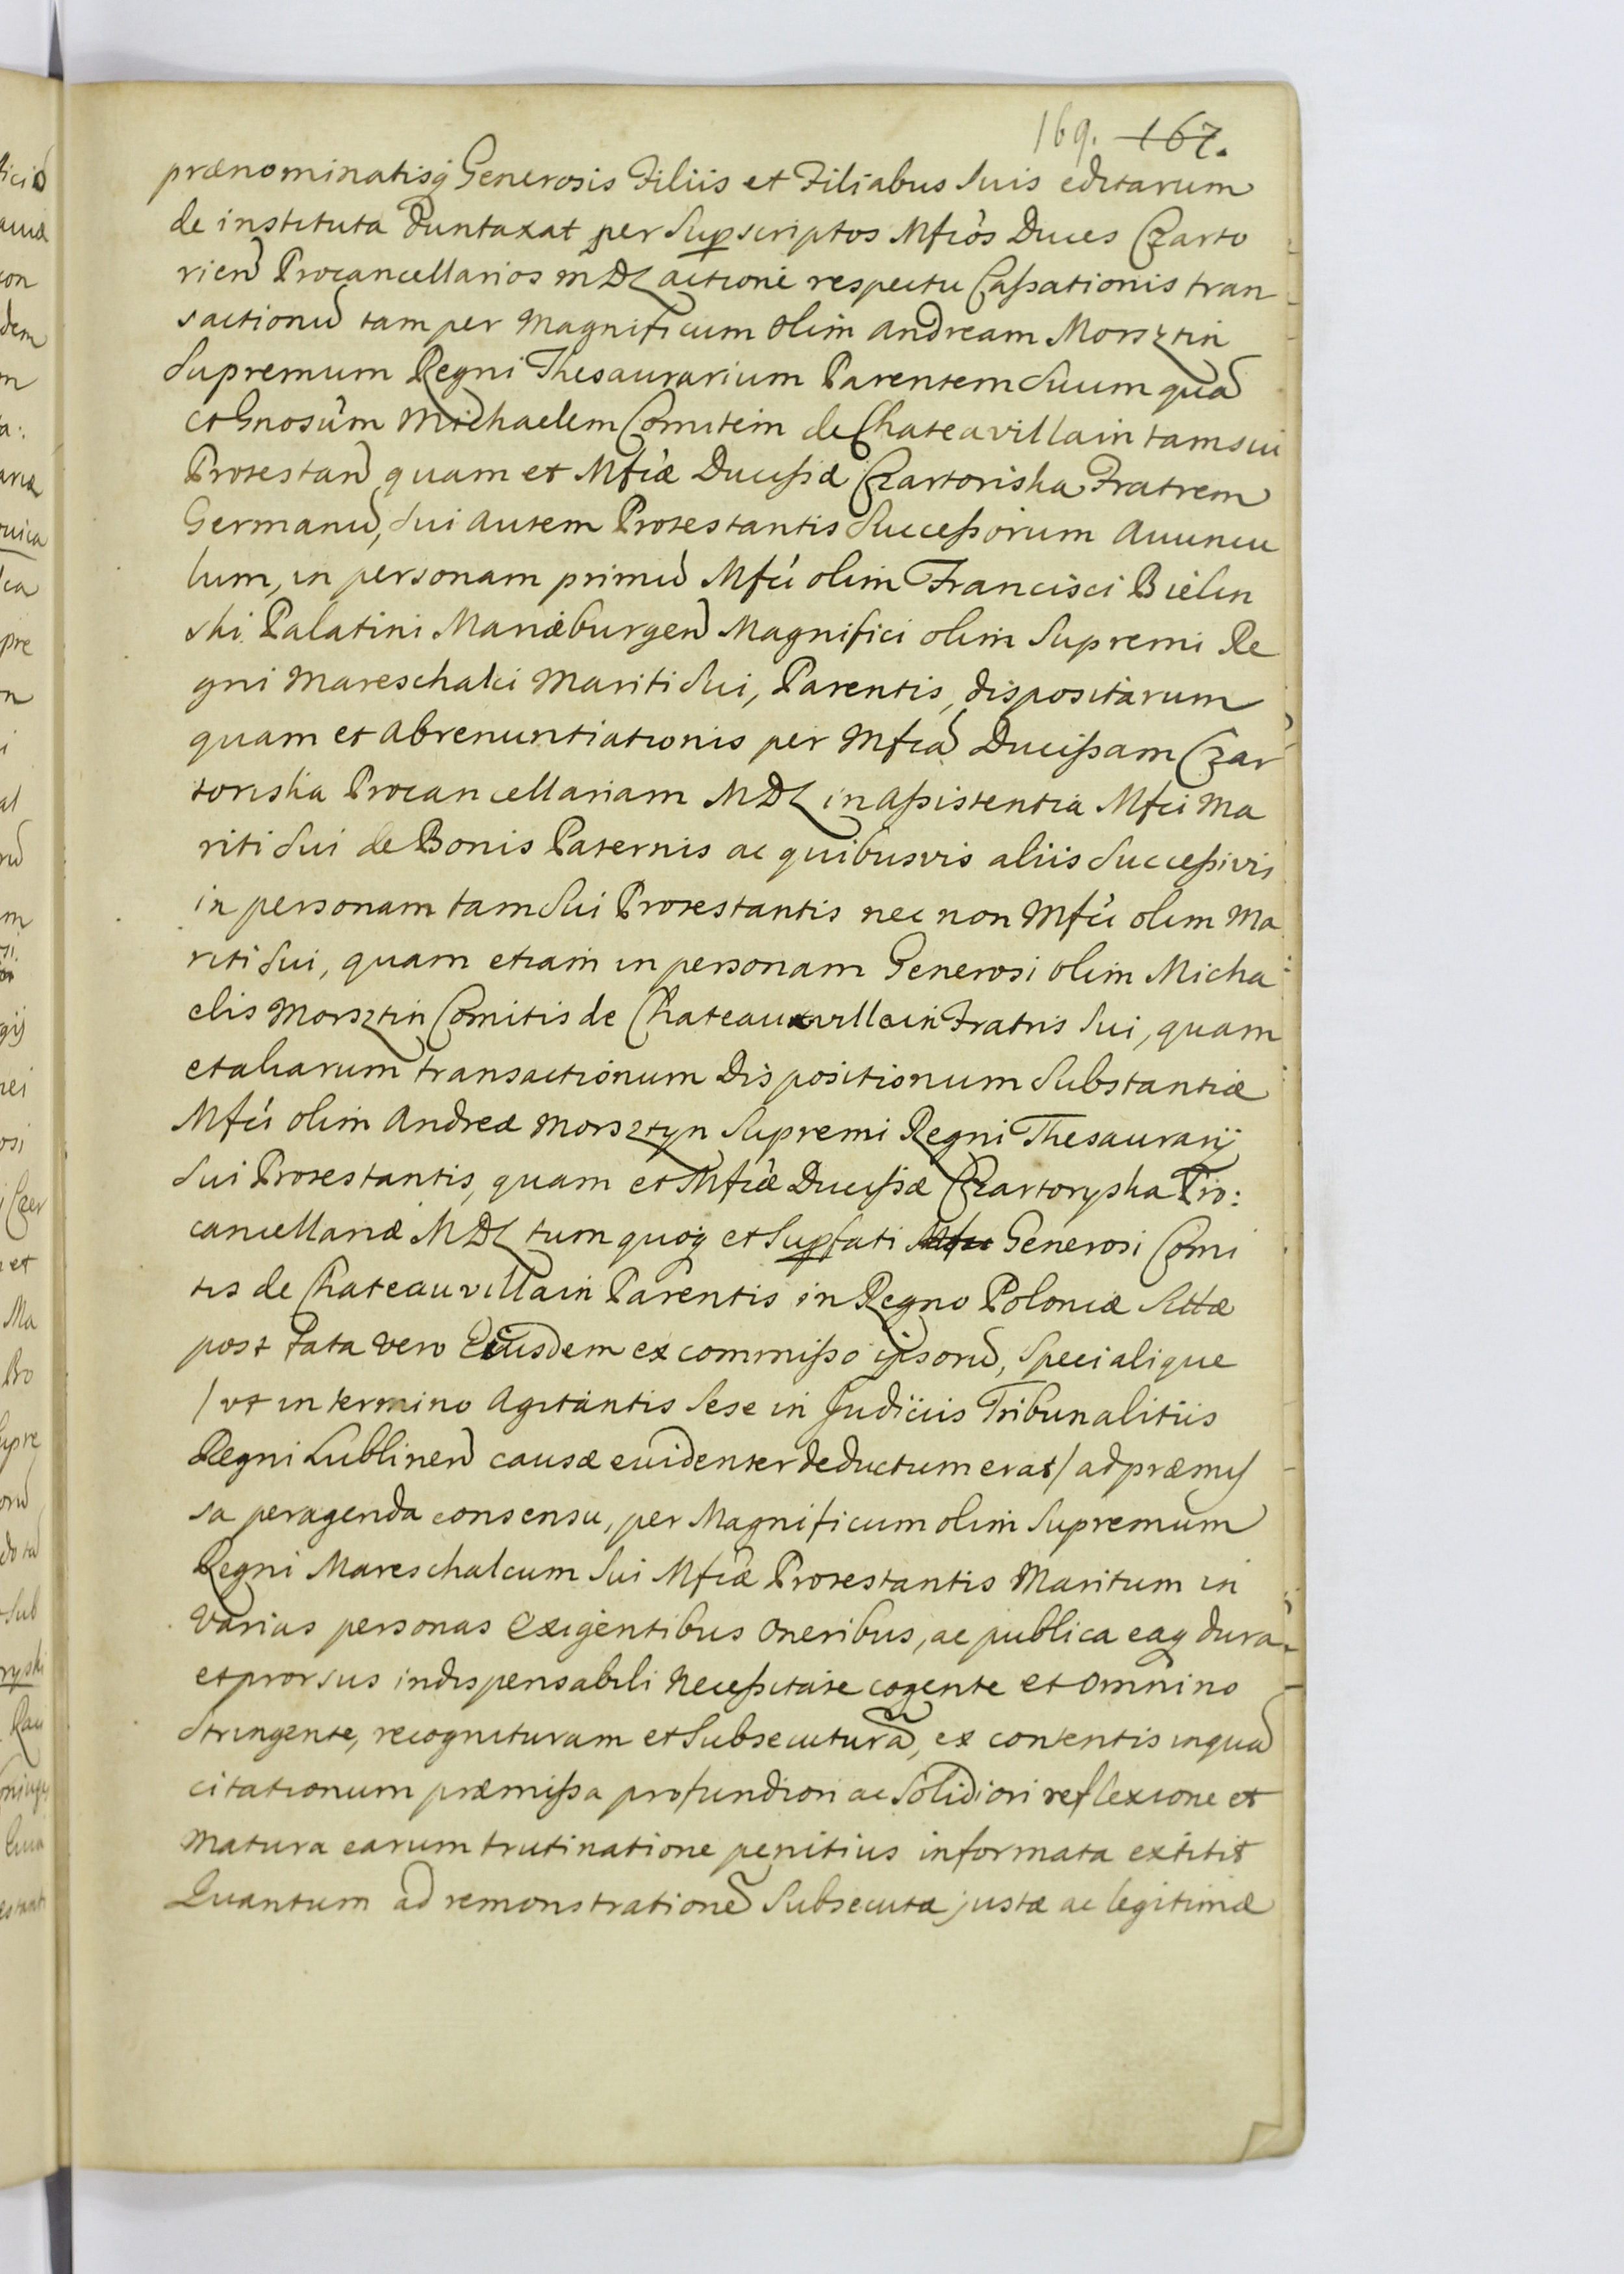 169. 167.
prænominatisq Generosis Filiis et Filiabus Suis editarum
de instituta duntaxat per Supscriptos Mfcos Duces Czarto
rien Procancellarios MDL actione respectu Cassationis tran
sactionu tam per Magnificum olim Andream Morsztin
Supremum Regni Thesaurarium Parentem Suum qua
et Gnosum Michaelem Comitem de Chateavillain tam sui
Protestan quam et Mficæ Ducissæ Czartoriska Fratrem
Germanu, Sui autem Protestantis Successorum Auuncu
lum, in personam primu Mfci olim Francisci Bielin
ski Palatini Mariæburgen Magnifici olim Supremi Re
gni Mareschalci Mariti Sui, Parentis, dispositarum
quam et Abrenuntiationis per Mfca Ducissam Czar
toriska Procancellariam MDL in Assistentia Mfci Ma
riti Sui de Bonis Paternis ac quibusvis aliis Successivis
in personam tam Sui Protestantis nec non Mfci olim Ma
riti Sui, quam etiam in personam Generosi olim Micha
elis Morsztin Comitis de Chateauvillain Fratris Sui, quam
et aliarum transactionum Dispositionum Substantiæ
Mfci olim Andreæ Morsztyn Supremi Regni Thesaurarij
Sui Protestantis, quam et Mficæ Ducissæ Czartoryska Pro:
cancellariæ MDL tum quoq et Supfati Mfci Generosi Comi
tis de Chateauvillain Parentis in Regno Poloniæ Sittæ
post Fata vero Eiusdem ex commisso ipsoru, Specialique
/ ut in termino Agitantis Sese in Judiciis Tribunalitiis
Regni Lublinen causæ euidenter deductum erat / ad præmis
sa peragenda consensu, per Magnificum olim Supremum
Regni Mareschalcum Sui Mficæ Protestantis Maritum in
Varias personas Exigentibus Oneribus, ac publica eaq dura
et prorsus indispensabili Necessitate cogente et Omnino
Stringente, recognituram et Subsecutura, ex contentis inqua
citationum præmissa profundiori ac Solidiori reflexione et
Matura earum trutinatione penitius informata extitit
Quantum ad remonstratione Subsecutæ justæ ac legitimæ